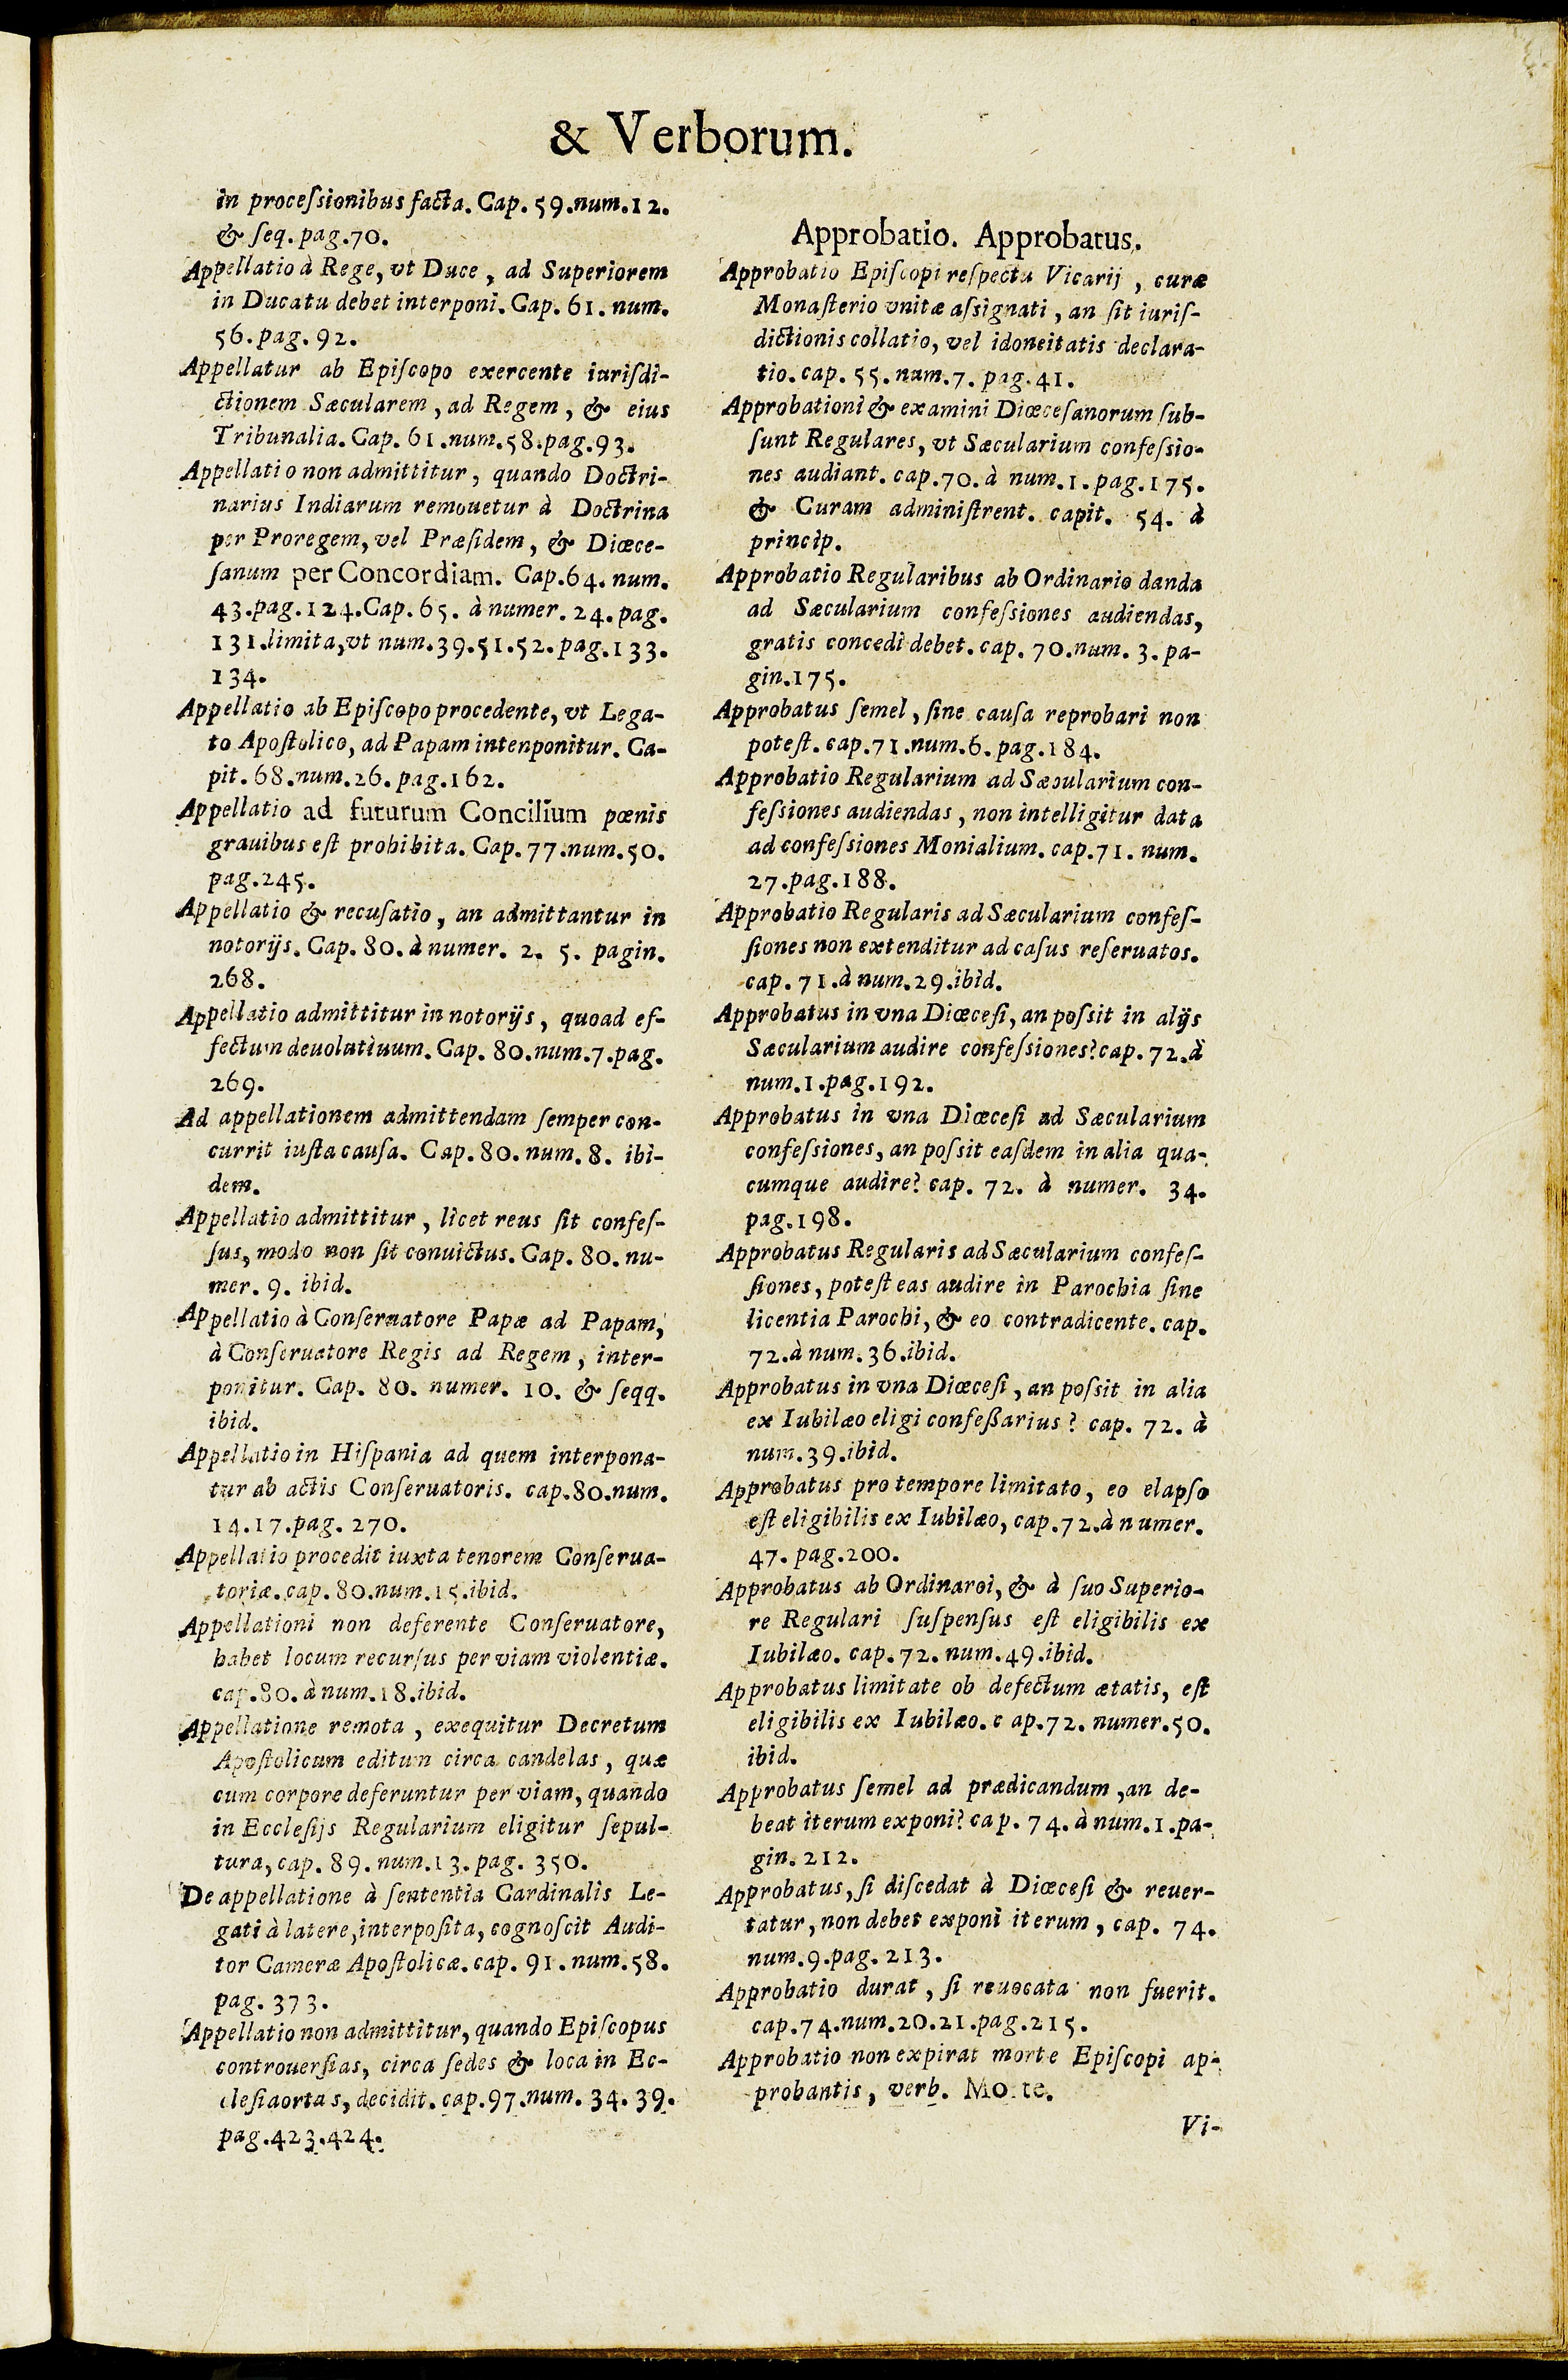 & Verborum.
in proceſsionibus facta. Cap. 59.num.12.
& ſeq. pag.70.
Appellatio à Rege, vt Duce, ad Superiorem
in Ducatu debet interponi. Cap. 61. num.
56. pag. 92.
Appellatur ab Epiſcopo exercente iuriſdi-
ctionem Sæcularem, ad Regem, & eius
Tribunalia. Cap. 61.num.58.pag.93.
Appellatio non admittitur, quando Doctri-
narius Indiarum remouetur à Doctrina
per Proregem, vel Præſidem, & Diœce-
ſanum per Concordiam. Cap.64. num.
43.pag.124.Cap. 65. à numer. 24. pag.
131.limita,vt num.39.51.52.pag.133.
134.
Appellatio ab Epiſcopo procedente, vt Lega-
to Apoſtolico, ad Papam intenponitur. Ca-
pit. 68.num.26. pag.162.
Appellatio ad futurum Concilium pœnis
grauibus eſt prohibita. Cap.77.num.50.
pag.245.
Appellatio & recuſatio, an admittantur in
notorijs. Cap. 80. à numer. 2. 5. pagin.
268.
Appellatio admittitur in notorijs, quoad ef-
fectum deuolutiuum. Cap. 80.num.7.pag.
269.
Ad appellationem admittendam ſemper con-
currit iuſta cauſa. Cap.80.num. 8. ibi-
dem.
Appellatio admittitur, licet reus ſit confeſ-
ſus, modo non ſit conuictus. Cap. 80. nu-
mer. 9. ibid.
Appellatio à Conſeruatore Papæ ad Papam,
à Conſeruatore Regis ad Regem, inter-
ponitur. Cap. 80. numer. 10. & ſeqq.
ibid.
Appellatio in Hiſpania ad quem interpona-
tur ab actis Conſeruatoris. cap.80.num.
14.17.pag. 270.
Appellatio procedit iuxta tenorem Conſerua-
toriæ. cap. 80.num.15.ibid.
Appellationi non deferente Conſeruatore,
habet locum recurſus per viam violentiæ.
cap.80. à num.18.ibid.
Appellatione remota, exequitur Decretum
Apoſtolicum editum circa candelas, quæ
cum corpore deferuntur per viam, quando
in Eccleſijs Regularium eligitur ſepul-
tura, cap. 89. num.13. pag. 350.
De appellatione à ſententia Cardinalis Le-
gati à latere,interpoſita, cognoſcit Audi-
tor Cameræ Apoſtolicæ. cap. 91. num.58.
pag. 373.
Appellatio non admittitur, quando Epiſcopus
controuerſias, circa ſedes & loca in Ec-
cleſiaortas, decidit. cap.97.num. 34. 39.
pag.423.424.
Approbatio. Approbatus.
Approbatio Epiſcopi reſpectu Vicarij, curæ
Monaſterio vnitæ aſsignati, an ſit iuriſ-
dictionis collatio, vel idoneitatis declara-
tio. cap. 55. num.7. pag.41.
Approbationi & examini Diœceſanorum ſub-
ſunt Regulares, vt Sæcularium confeſsio-
nes audiant. cap.70. à num.1. pag.175.
& Curam adminiſtrent. capit. 54. à
princip.
Approbatio Regularibus ab Ordinario danda
ad Sæcularium confeſsiones audiendas,
gratis concedi debet. cap. 70.num. 3. pa-
gin.175.
Approbatus ſemel, ſine cauſa reprobari non
poteſt. cap.71.num.6. pag.184.
Approbatio Regularium ad Sæcularium con-
feſsiones audiendas, non intelligitur data
ad confeſsiones Monialium. cap.71. num.
27.pag.188.
Approbatio Regularis ad Sæcularium confeſ-
ſiones non extenditur ad caſus reſeruatos.
cap. 71.à num.29.ibid.
Approbatus in vna Diœceſi, an poſsit in alijs
Sæcularium audire confeſsiones? cap. 72.à
num.1.pag.192.
Approbatus in vna Diœceſi ad Sæcularium
confeſsiones, an poſsit eaſdem in alia qua-
cumque audire? cap. 72. à numer. 34.
pag.198.
Approbatus Regularis ad Sæcularium confeſ-
ſiones, poteſt eas audire in Parochia ſine
licentia Parochi, & eo contradicente. cap.
72.à num.36.ibid.
Approbatus in vna Diœceſi, an poſsit in alia
ex Iubilæo eligi confeßarius? cap. 72. à
num.39.ibid.
Approbatus pro tempore limitato, eo elapſo
eſt eligibilis ex Iubilæo, cap.72.à numer.
47. pag.200.
Approbatus ab Ordinaroi, & à ſuo Superio-
re Regulari ſuſpenſus eſt eligibilis ex
Iubilæo. cap.72. num.49.ibid.
Approbatus limitate ob defectum ætatis, eſt
eligibilis ex Iubilæo. c ap.72. numer.50.
ibid.
Approbatus ſemel ad prædicandum, an de-
beat iterum exponi? cap. 74. à num.1.pa-
gin.212.
Approbatus, ſi diſcedat à Diœceſi & reuer-
tatur, non debet exponi iterum, cap. 74.
num.9.pag.213.
Approbatio durat, ſi reuocata non fuerit.
cap.74.num.20.21.pag.215.
Approbatio non expirat morte Epiſcopi ap-
probantis, verb. Morte.
Vi-